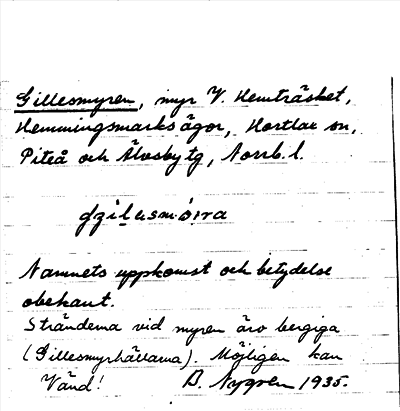 Gillesmyren, myr V. Hemträsket,
Hemmingsmarks ägor, Hortlax sn,
Piteå och Älvsby tg, Norrb. l.
Namnets uppkomst och betydelse
obekant.
Stränderna vid myren äro bergiga
(Gillesmyrhällarna). Möjligen kan
Vänd! B. Nygren 1935.